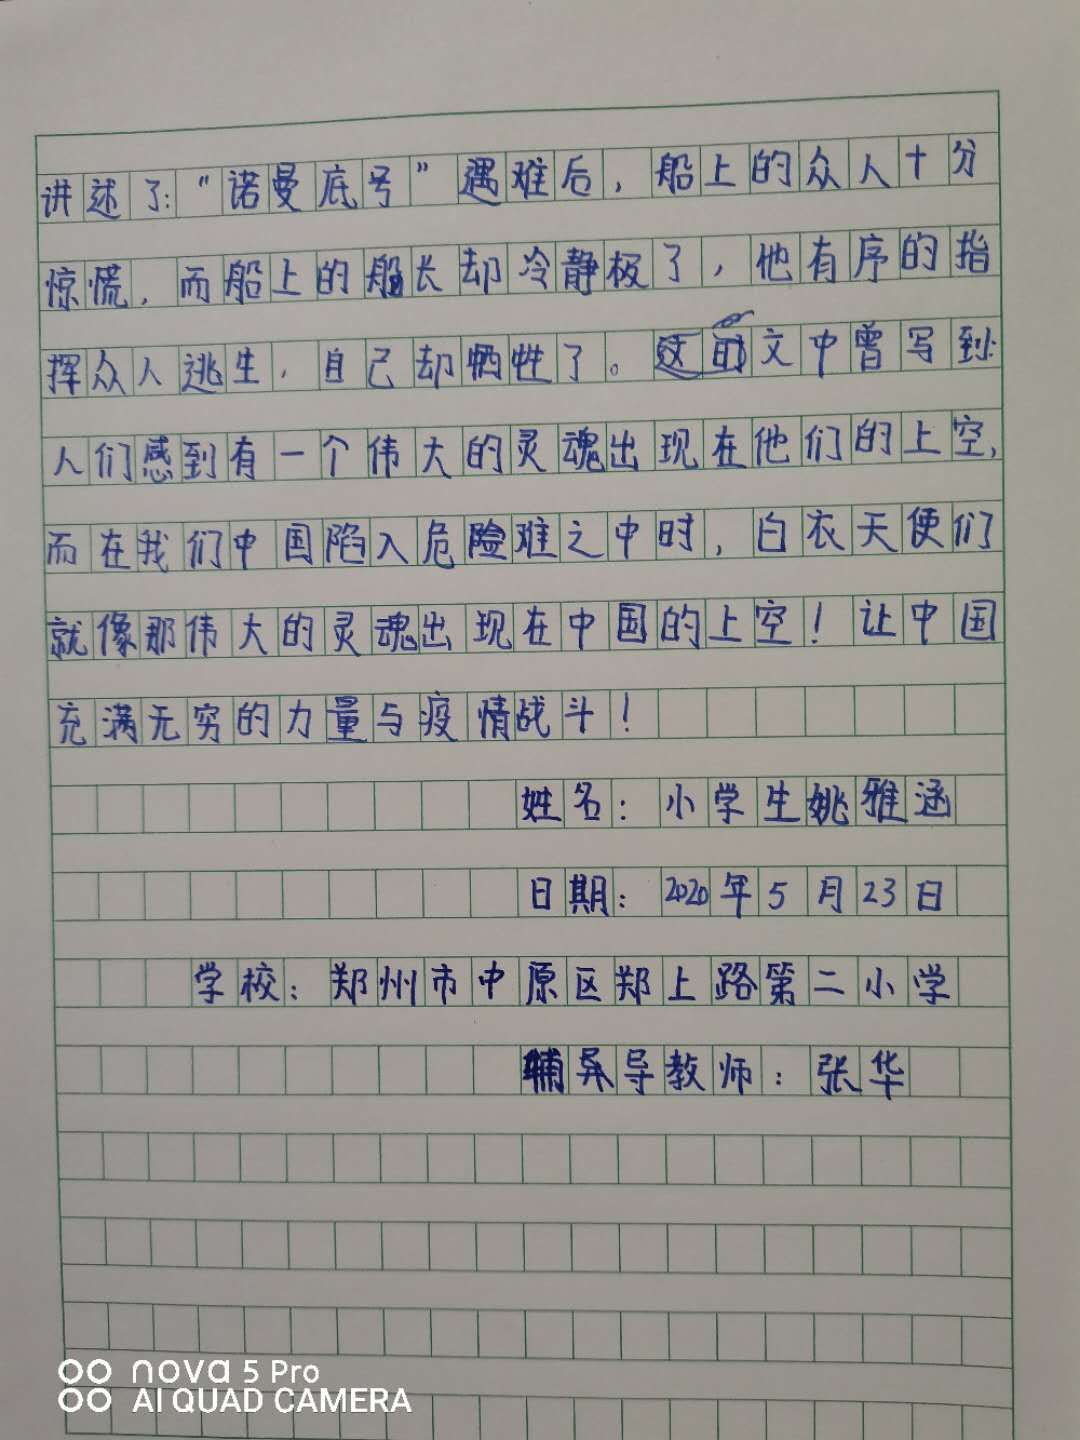 讲述了:“诺曼底号”遇难后，船上的众人十分
惊慌，而船上的船长却冷静极了，他有序的指
挥众人逃生，自己却牺牲了。文中曾写到:
人们感到有一个伟大的灵魂出现在他们的上空，
而在我们中国陷入危险难之中时，白衣天使们
就像那伟大的灵魂出现在中国的上空！让中国
充满无穷的力量与疫情战斗！
姓名：小学生姚雅涵
日期：2020年5月23日
学校：郑州市中原区郑上路第二小学
辅导教师：张华
nova 5 Pro
AI QUAD CAMERA